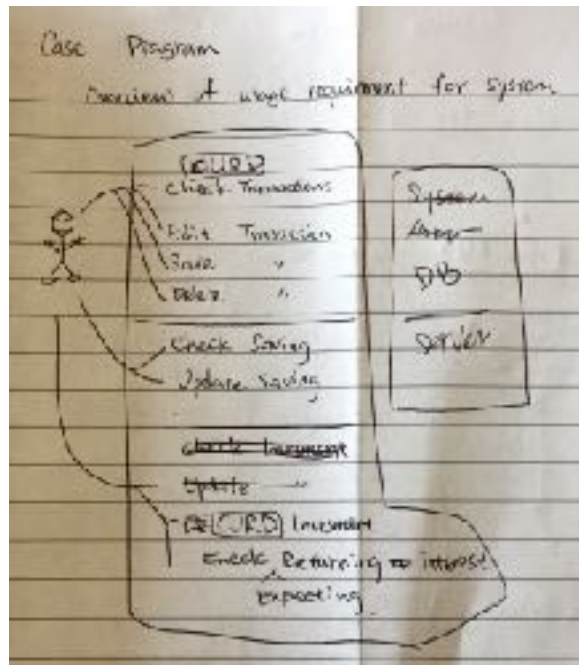 Case Diagram
Overview of usage requirment for System
CURD
Check Transactions
Edit Transaction
"
Delete "
Check Saving
Update Saving
Check Invesment
Update "
CURD Invesment
Check Returning interest
Expecting
System
DB
Server